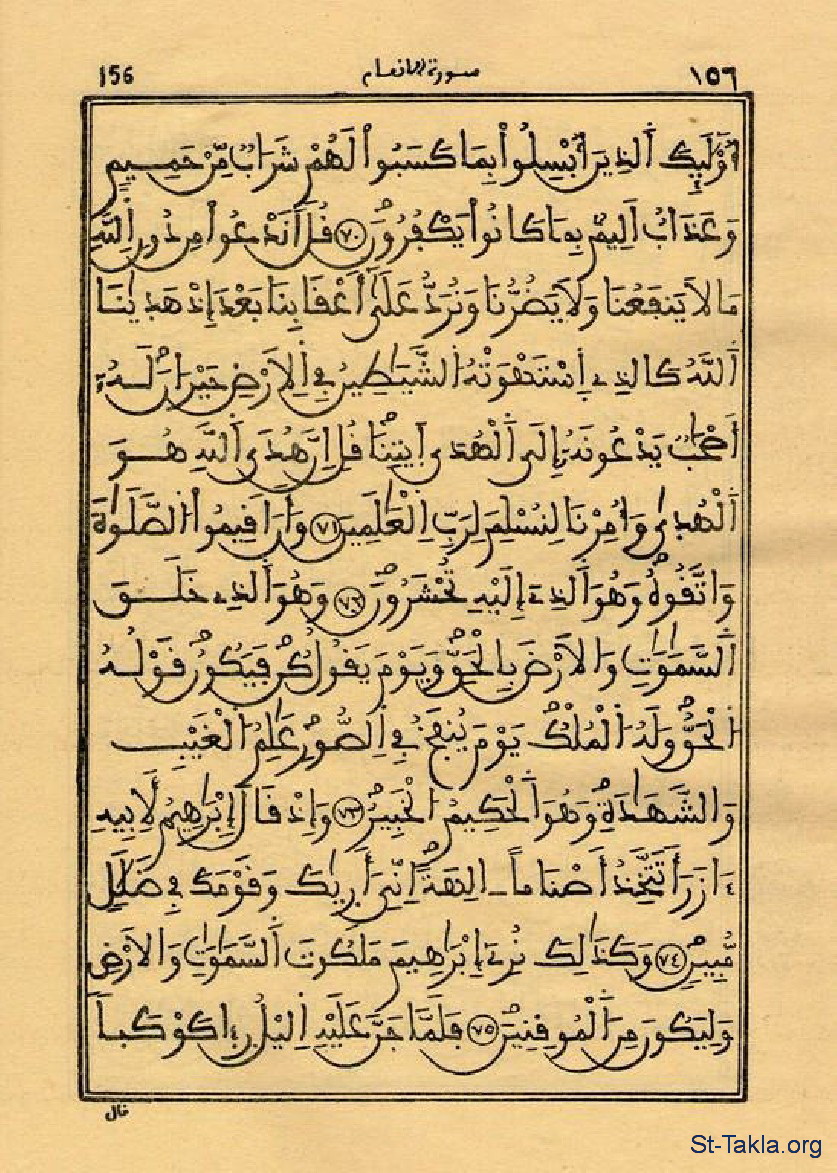 156 سورة الانعام ١٥٦
أُوْلَٰٓئِكَ اَ۬لذِينَ أُبْسِلُواْ بِمَا كَسَبُواْ لَهُمْ شَرَابٌ مِّنْ حَمِيمٍ
وَعَذَابٌ اَلِيمٌۢ بِمَا كَانُواْ يَكْفُرُونَۖ ٧٠ قُلَ اَنَدْعُواْ مِن دُونِ اِ۬للَّهِ
مَا لَا يَنفَعُنَا وَلَا يَضُرُّنَا وَنُرَدُّ عَلَىٰٓ أَعْقَابِنَا بَعْدَ إِذْ هَدَىٰنَا
اَ۬للَّهُ كَالذِے اِ۪سْتَهْوَتْهُ اُ۬لشَّيَٰطِينُ فِے اِ۬لَارْضِ حَيْرَانَۖ لَهُۥٓ
أَصْحَٰبٌ يَدْعُونَهُۥٓ إِلَى اَ۬لْهُدَى اَ۪يتِنَاۖ قُلِ اِنَّ هُدَى اَ۬للَّهِ هُوَ
اَ۬لْهُد۪ىٰ وَأُمِرْنَا لِنُسْلِمَ لِرَبِّ اِ۬لْعَٰلَمِينَ ٧١ وَأَنَ اَقِيمُواْ اُ۬لصَّلَوٰةَ
وَاتَّقُوهُۖ وَهُوَ اَ۬لذِےٓ إِلَيْهِ تُحْشَرُونَۖ ٧٢ وَهُوَ اَ۬لذِے خَلَقَ
اَ۬لسَّمَٰوَٰتِ وَالَارْضَ بِالْحَقِّۖ وَيَوْمَ يَقُولُ كُن فَيَكُونُۖ قَوْلُهُ
اُ۬لْحَقُّۖ وَلَهُ اُ۬لْمُلْكُ يَوْمَ يُنفَخُ فِے اِ۬لصُّورِۖ عَٰلِمُ اُ۬لْغَيْبِ
وَالشَّهَٰدَةِۖ وَهُوَ اَ۬لْحَكِيمُ اُ۬لْخَبِيرُۖ ٧٣ وَإِذْ قَالَ إِبْرَٰهِيمُ لِأَبِيهِ
ءَازَرَ أَتَتَّخِذُ أَصْنَاماً اٰلِهَةًۖ اِنِّيَ أَر۪ىٰكَ وَقَوْمَكَ فِے ضَلَٰلٖ
مُّبِينٖۖ ٧٤ وَكَذَٰلِكَ نُرِےٓ إِبْرَٰهِيمَ مَلَكُوتَ اَ۬لسَّمَٰوَٰتِ وَالَارْضِ
وَلِيَكُونَ مِنَ اَ۬لْمُوقِنِينَۖ ٧٥ فَلَمَّا جَنَّ عَلَيْهِ اِ۬ليْلُ ر۪ء۪ا كَوْكَباٗ
قال
St-Takla.org